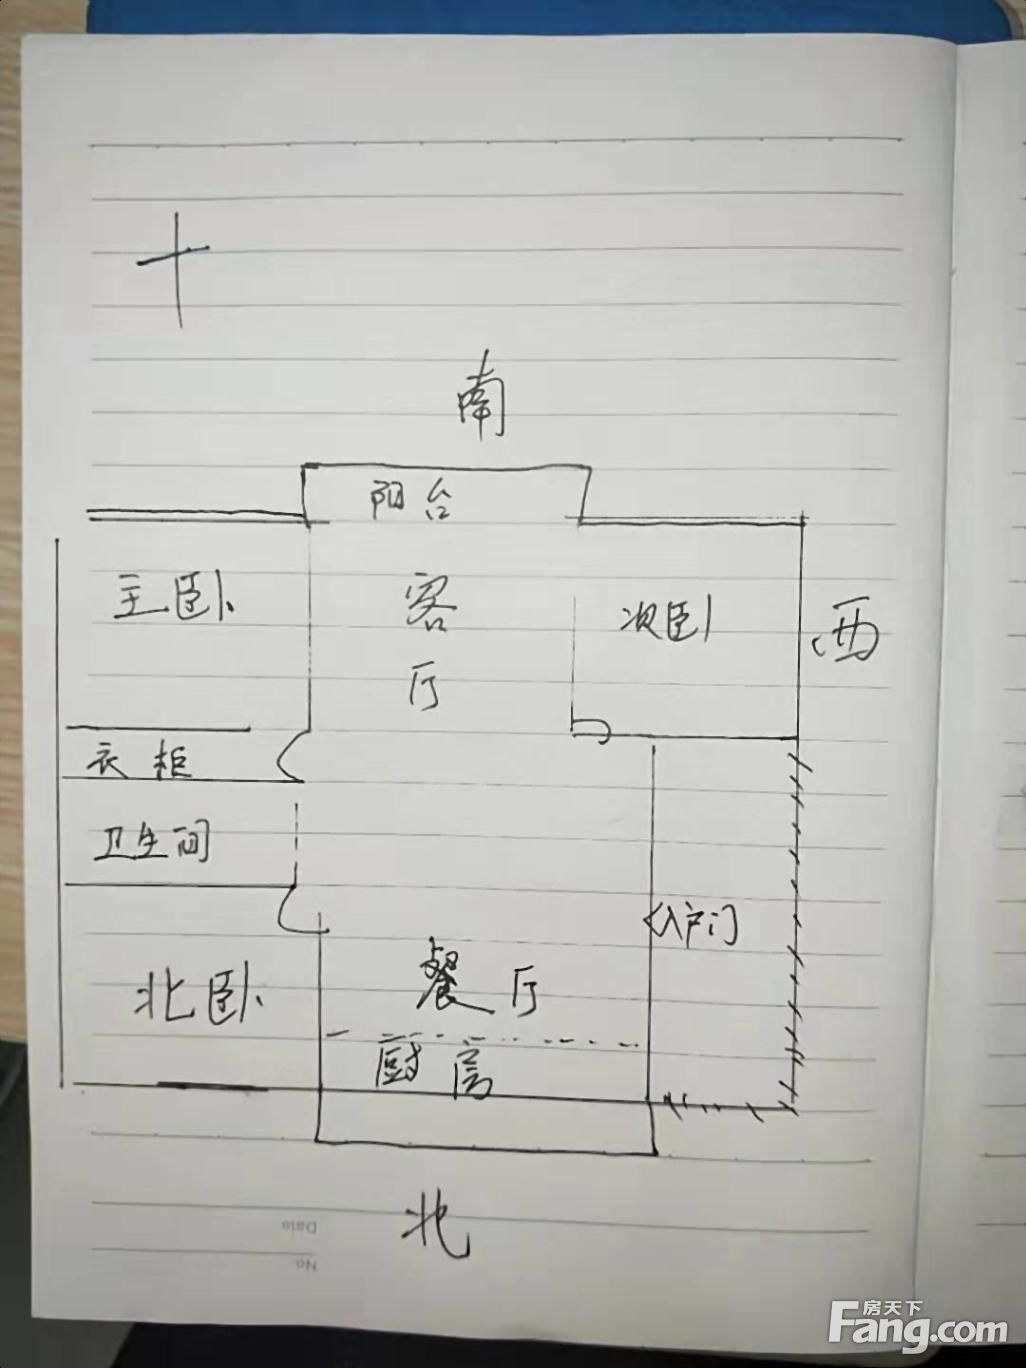 南
阳台
主卧
客厅
次卧
西
衣柜
卫生间
入户门
北卧
餐厅
厨
北
Date
No.
房天下
Fang.com